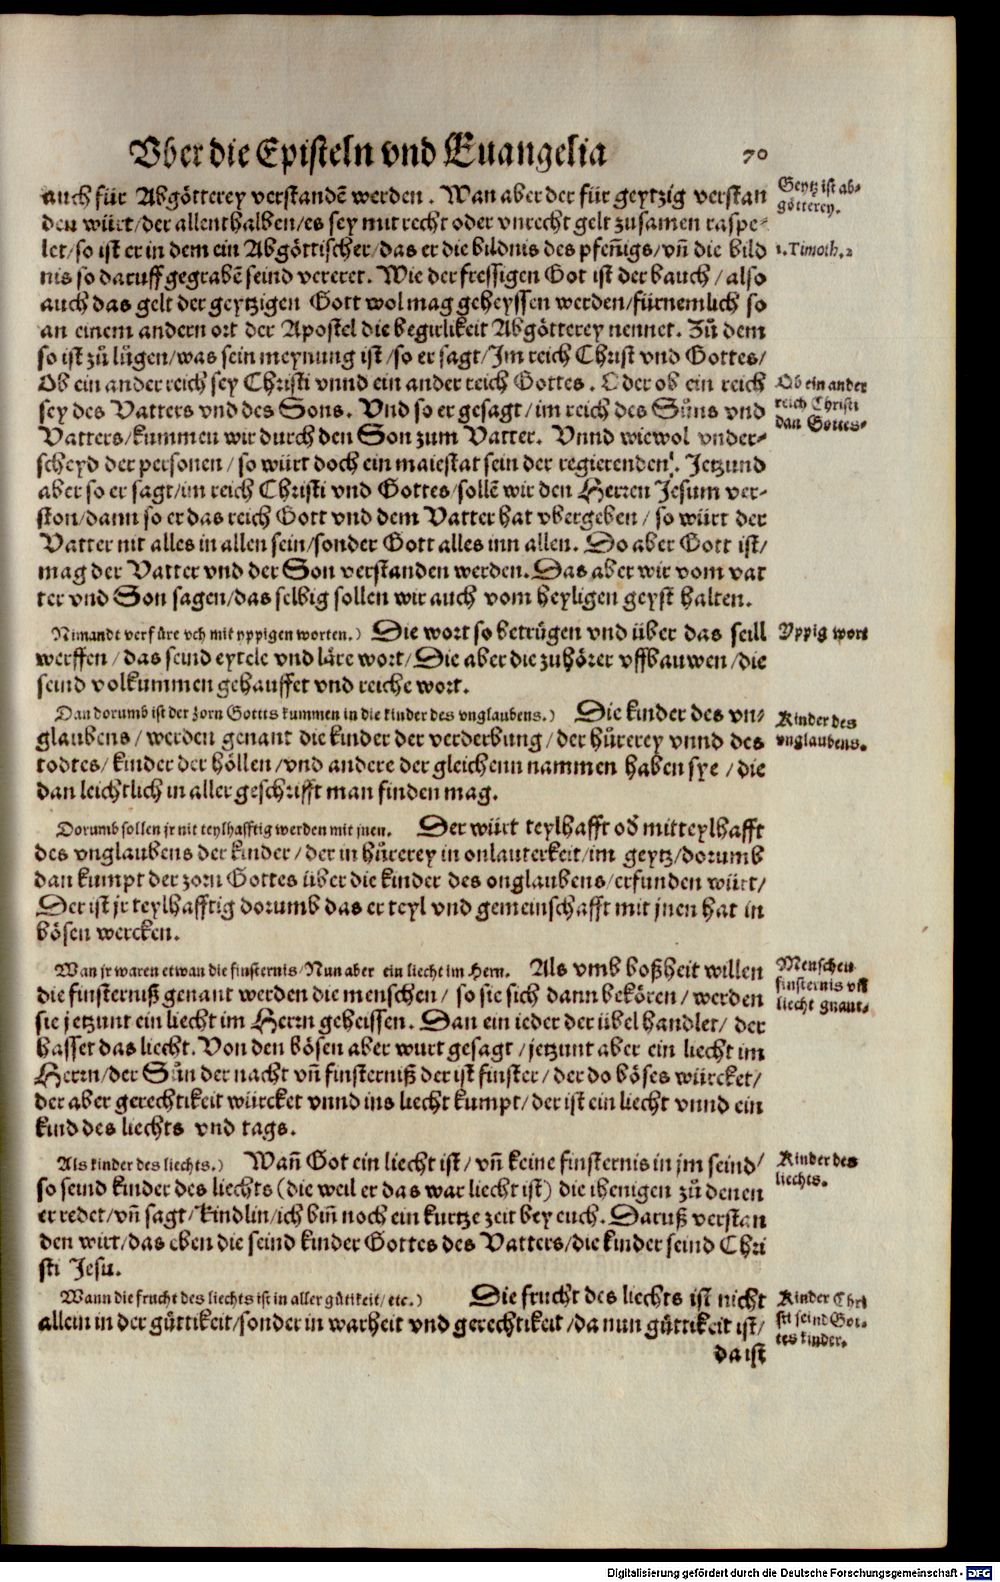 Vber die Episteln vnd Euangelia 70
auch für Abgötterey verstandē werden. Wan aber der für geytzig verstan
den würt/der allenthalben/es sey mit recht oder vnrecht gelt zusamen raspe-
let/so ist er in dem ein Abgöttischer/das er die bildnis des pfeñigs/vñ die bild
nis so daruff gegrabē seind vereret. Wie der fressigen Got ist der bauch/also
auch das gelt der geytzigen Gott wol mag geheyssen werden/fürnemlich so
an einem andern ort der Apostel die begirlikeit Abgötterey nennet. Zů dem
so ist zů lůgen/was sein meynung ist/so er sagt/Im reich Christ vnd Gottes/
Ob ein ander reich sey Christi vnnd ein ander reich Gottes. Oder ob ein reich
sey des Vatters vnd des Sons. Vnd so er gesagt/im reich des Sůns vnd
Vatters/kummen wir durch den Son zum Vatter. Vnnd wiewol vnder-
scheyd der personen/so würt doch ein maiestat sein der regierenden. Jetzund
aber so er sagt/im reich Christi vnd Gottes/sollē wir den Herren Jesum ver-
ston/dann so er das reich Gott vnd dem Vatter hat vbergeben/so würt der
Vatter nit alles in allen sein/sonder Gott alles inn allen. Do aber Gott ist/
mag der Vatter vnd der Son verstanden werden. Das aber wir vom vat
ter vnd Son sagen/das selbig sollen wir auch vom heyligen geyst halten.
Nimandt verfüre vch mit yppigen worten.) Die wort so betrügen vnd über das seill
werffen/das seind eytele vnd läre wort/Die aber die zuhörer vffbauwen/die
seind volkummen gehauffet vnd reiche wort.
Dan dorumb ist der zorn Gottts kummen in die kinder des vnglaubens.) Die kinder des vn-
glaubens/werden genant die kinder der verderbung/der hůrerey vnnd des
todtes/kinder der höllen/vnd andere der gleichenn nammen haben sye/die
dan leichtlich in aller geschrifft man finden mag.
Dorumb sollen jr nit teylhafftig werden mit jnen. Der würt teylhafft od̄ mitteylhafft
des vnglaubens der kinder/der in hůrerey in onlauterkeit/im geytz/dorumb
dan kumpt der zorn Gottes über die kinder des onglaubens/erfunden würt/
Der ist jr teylhafftig dorumb das er teyl vnd gemeinschafft mit jnen hat in
bösen wercken.
Wan jr waren etwan die finsternis/Nun aber ein liecht im Hern. Als vmb boßheit willen
die finsterniß genant werden die menschen/so sie sich dann bekören/werden
sie jetzunt ein liecht im Herrn geheissen. Dan ein ieder der übel handlet/der
hasset das liecht. Von den bösen aber wurt gesagt/jetzunt aber ein liecht im
Herrn/der Sůn der nacht vñ finsterniß der ist finster/der do böses würcket/
der aber gerechtikeit würcket vnnd ins liecht kumpt/der ist ein liecht vnnd ein
kind des liechts vnd tags.
Als kinder des liechts.) Wañ Got ein liecht ist/vñ keine finsternis in jm seind/
so seind kinder des liechts (die weil er das war liecht ist) die ihenigen zů denen
er redet/vñ sagt/Kindlin/ich biñ noch ein kurtze zeit bey euch. Daruß verstan
den wirt/das eben die seind kinder Gottes des Vatters/die kinder seind Chri
sti Jesu.
Wann die frucht des liechts ist in aller gůtikeit/etc.) Die frucht des liechts ist nicht
allein in der gůttikeit/sonder in warheit vnd gerechtikeit/da nun gůttikeit ist/
da ist
Geytz ist ab-
götterey.
1. Timoth. 2
Ob ein ander
reich Christi
dan Gottes.
Vppig wort
Kinder des
vnglaubens.
Menschen
finsternis vñ
liecht gnant.
Kinder des
liechts.
Kinder Chri
sti seind Got-
tes kinder.
Digitalisierung gefördert durch die Deutsche Forschungsgemeinschaft - DFG